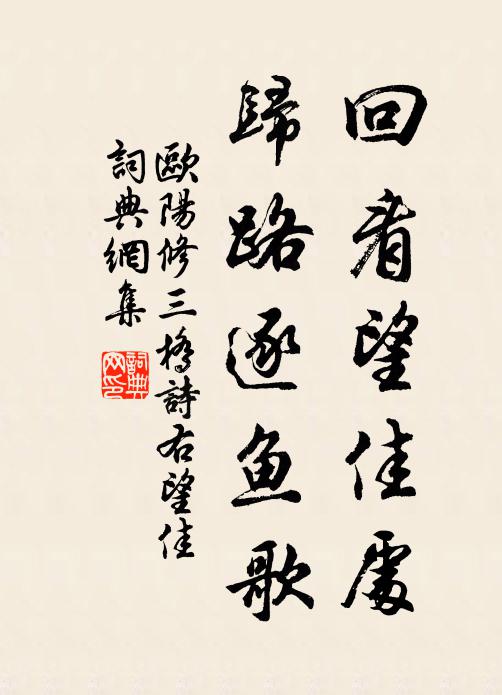 回看望佳處
歸路逐鱼歌
歐陽修三橋詩右望佳
詞典網集
詞典网印